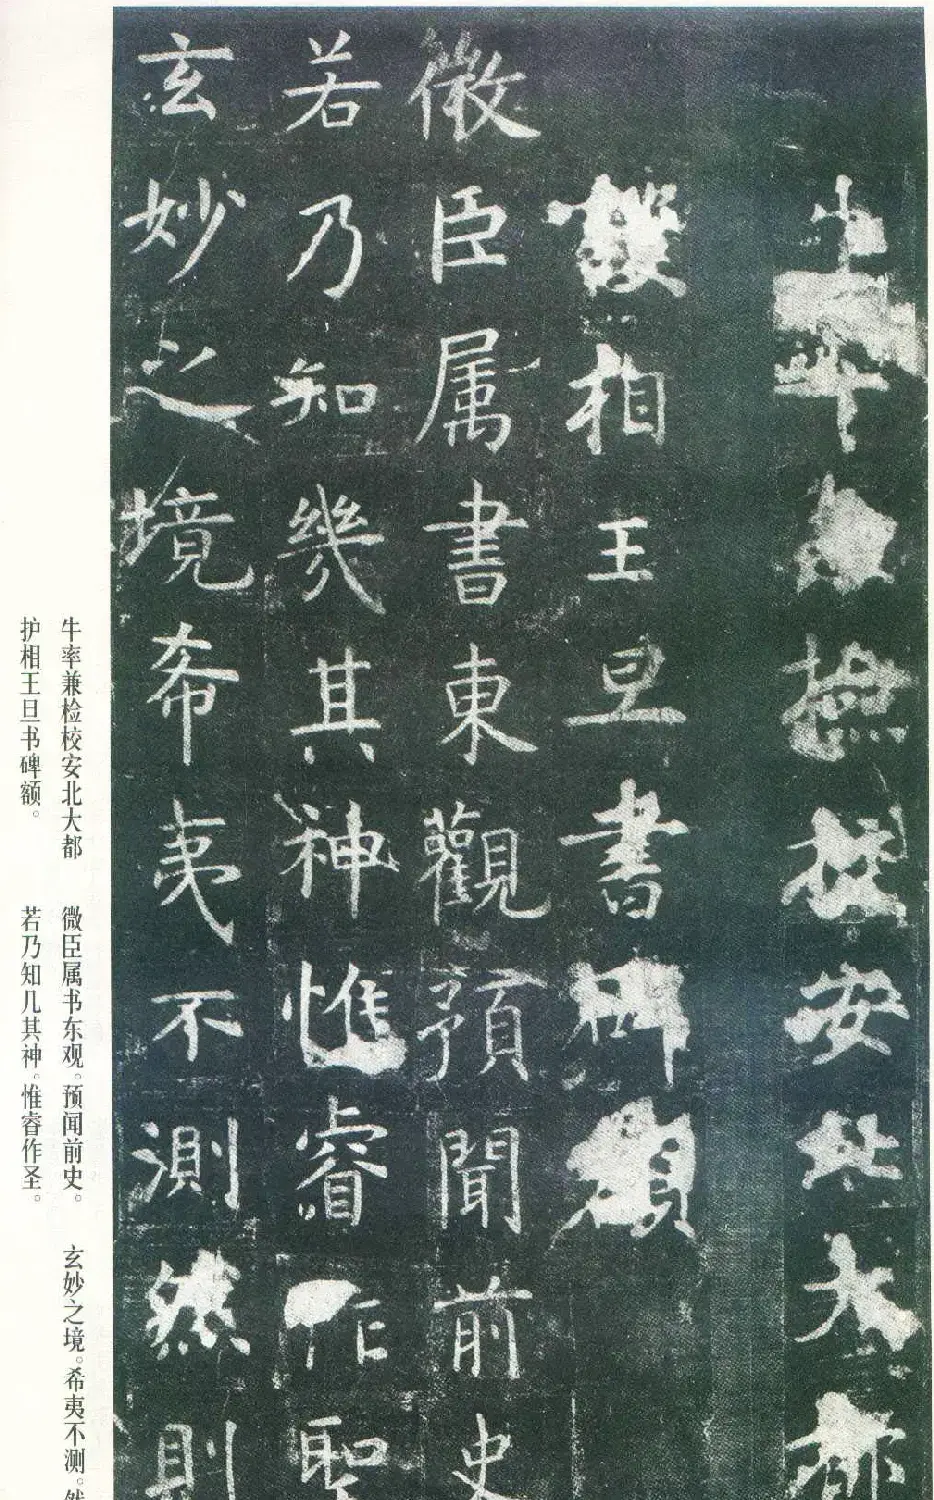 牛率兼撿校安北大都
護相王旦書碑額
微臣属書東觀預聞前史
若乃知幾其神惟睿作聖
玄妙之境希夷不測然則
牛率兼检校安北大都
护相王旦书碑额。
微臣属书东观。预闻前史。
若乃知几其神。惟睿作圣。
玄妙之境。希夷不测。然